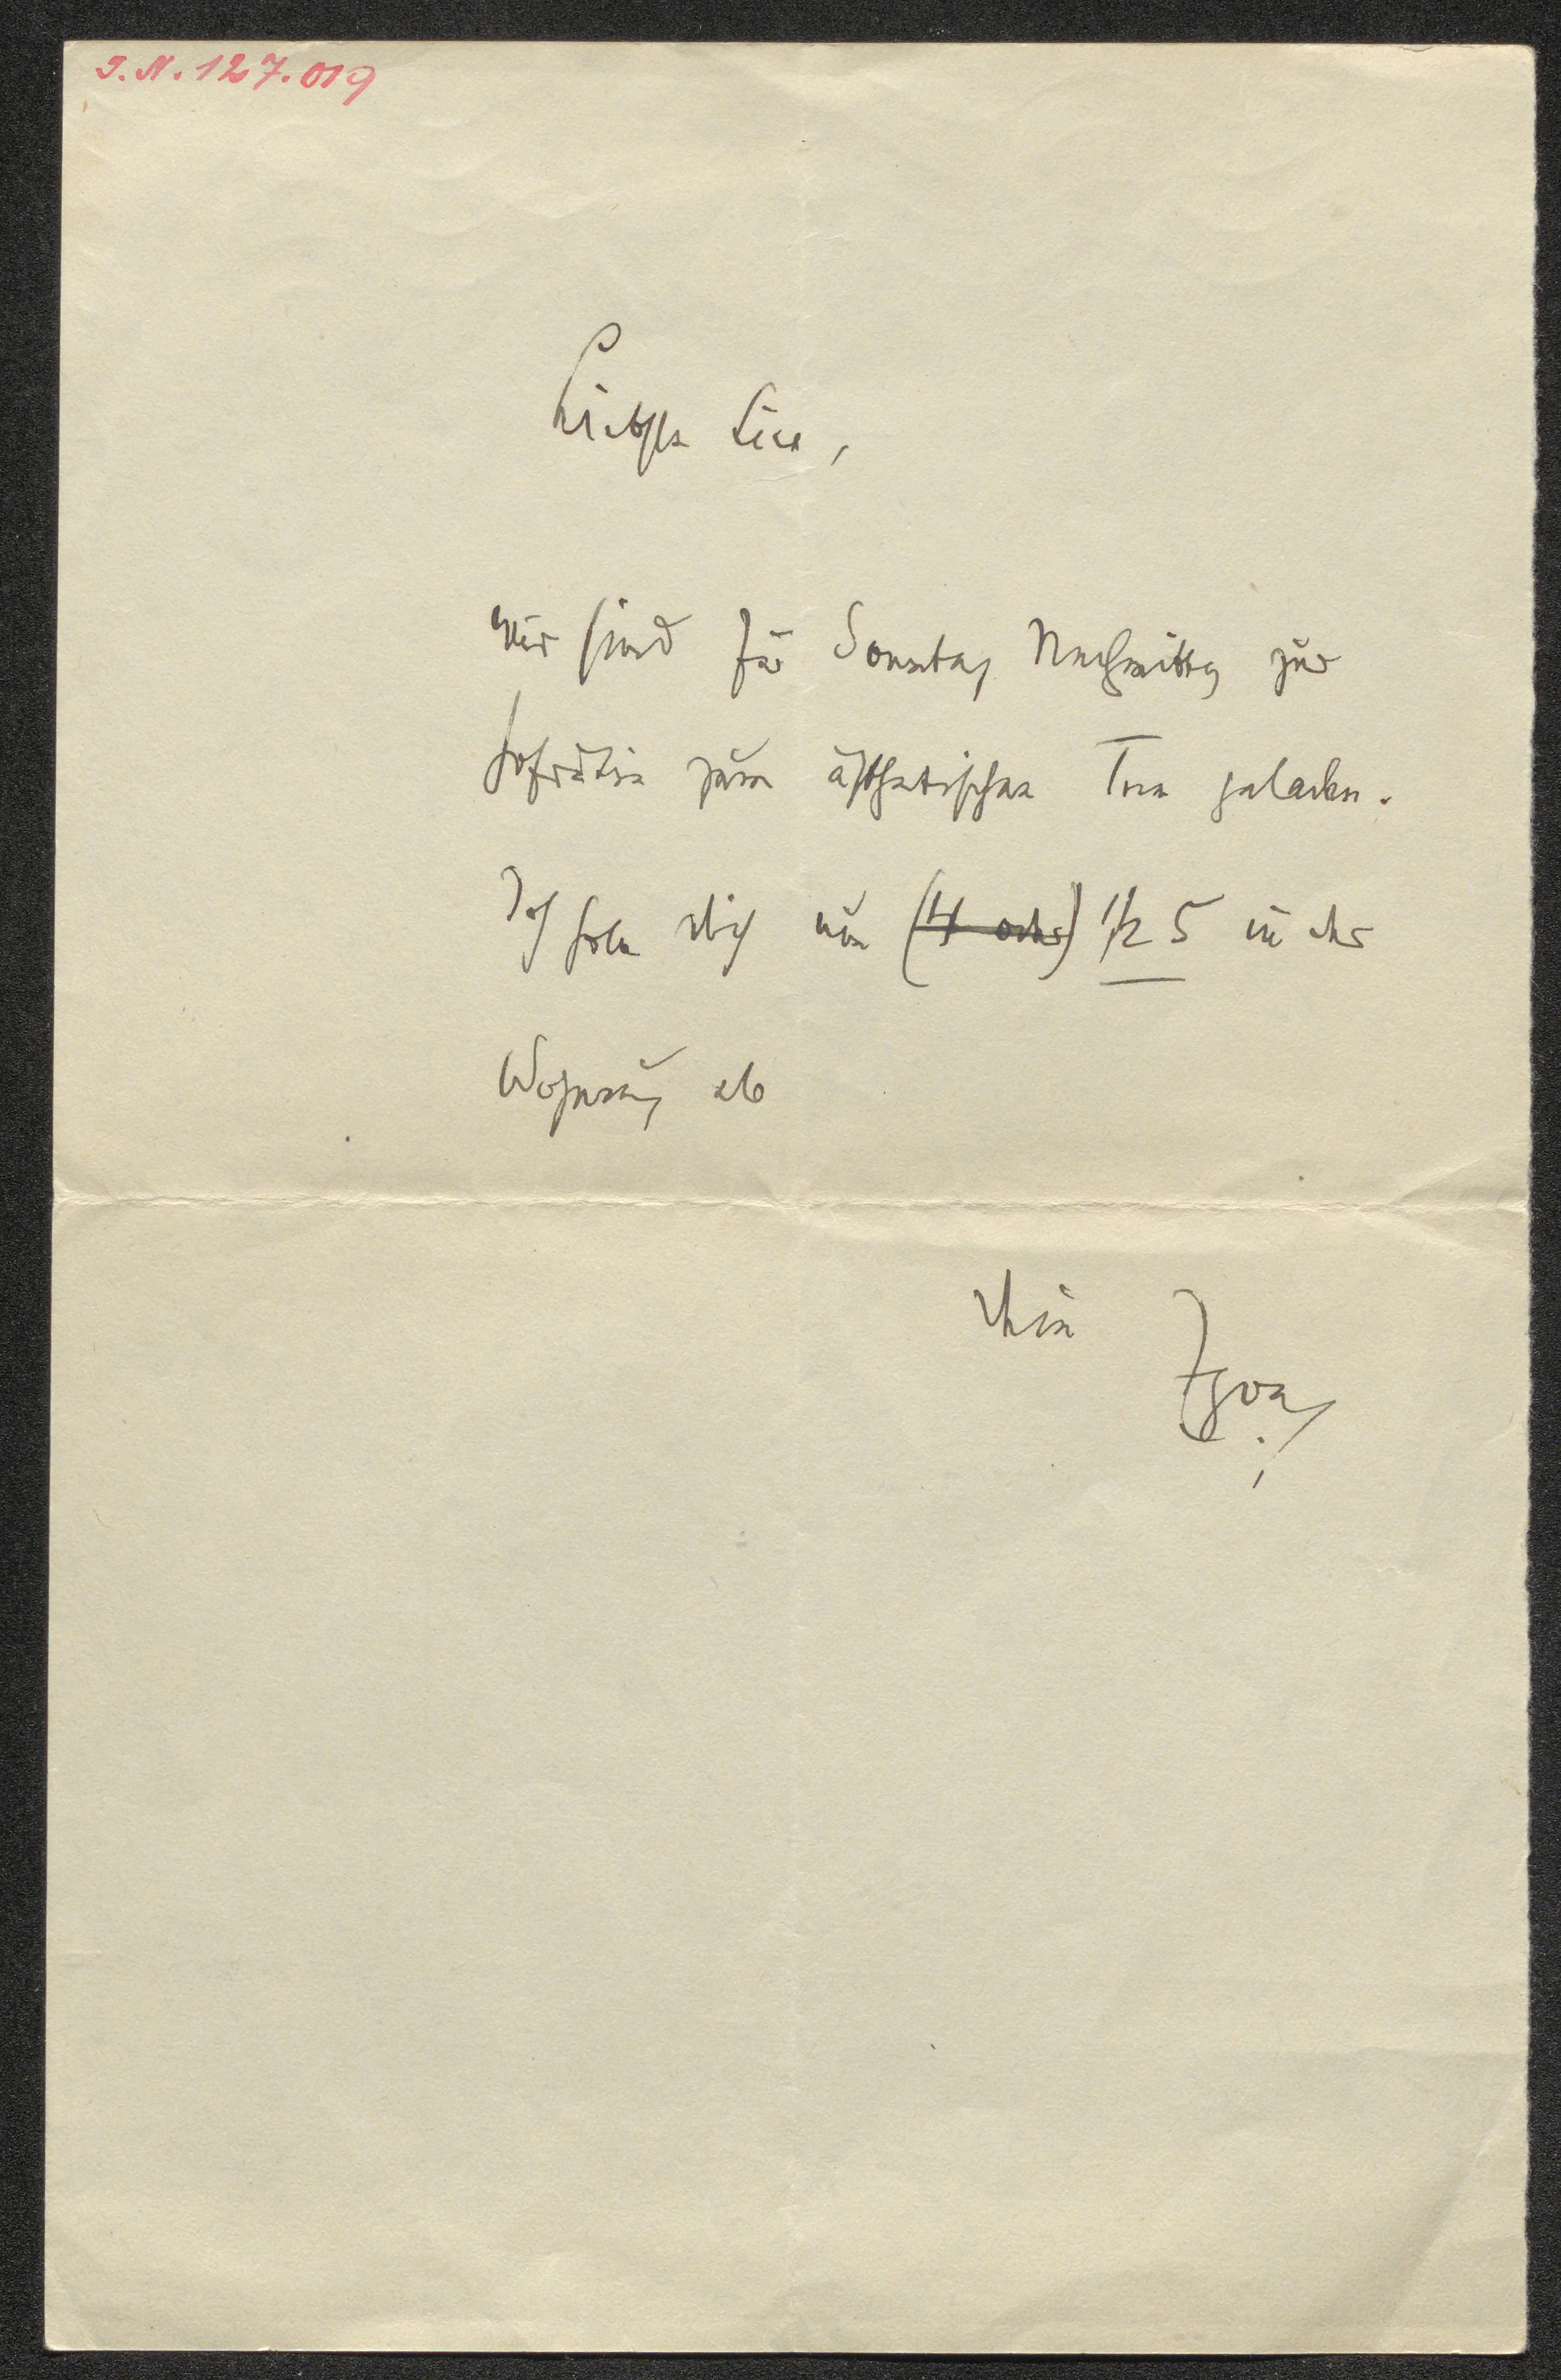 I.N. 127.019
Liebste Lea,
wir sind für Sonntag Nachmittag zur
Hofrätin zum ästhetischen Tee geladen.
Ich hole dich um (4 oder) 1/2 5 in der
Wohnung ab
dein
Egon